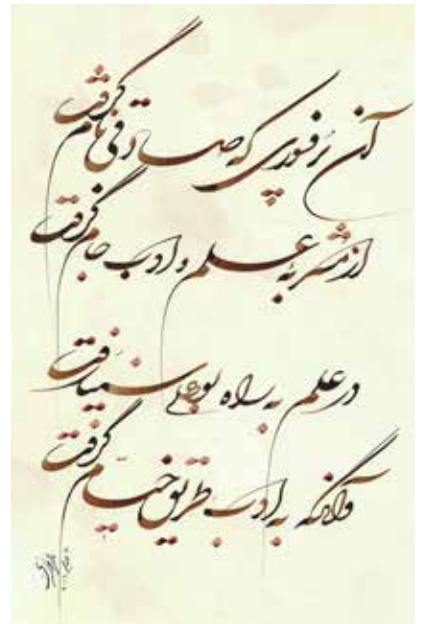 آن پُرفسوری که صادقی نام گرفت
از مَشربهٔ علم و ادب جام گرفت
در علم به راه بوعلی سینا رفت
وآنگه به ادب طریق خیّام گرفت